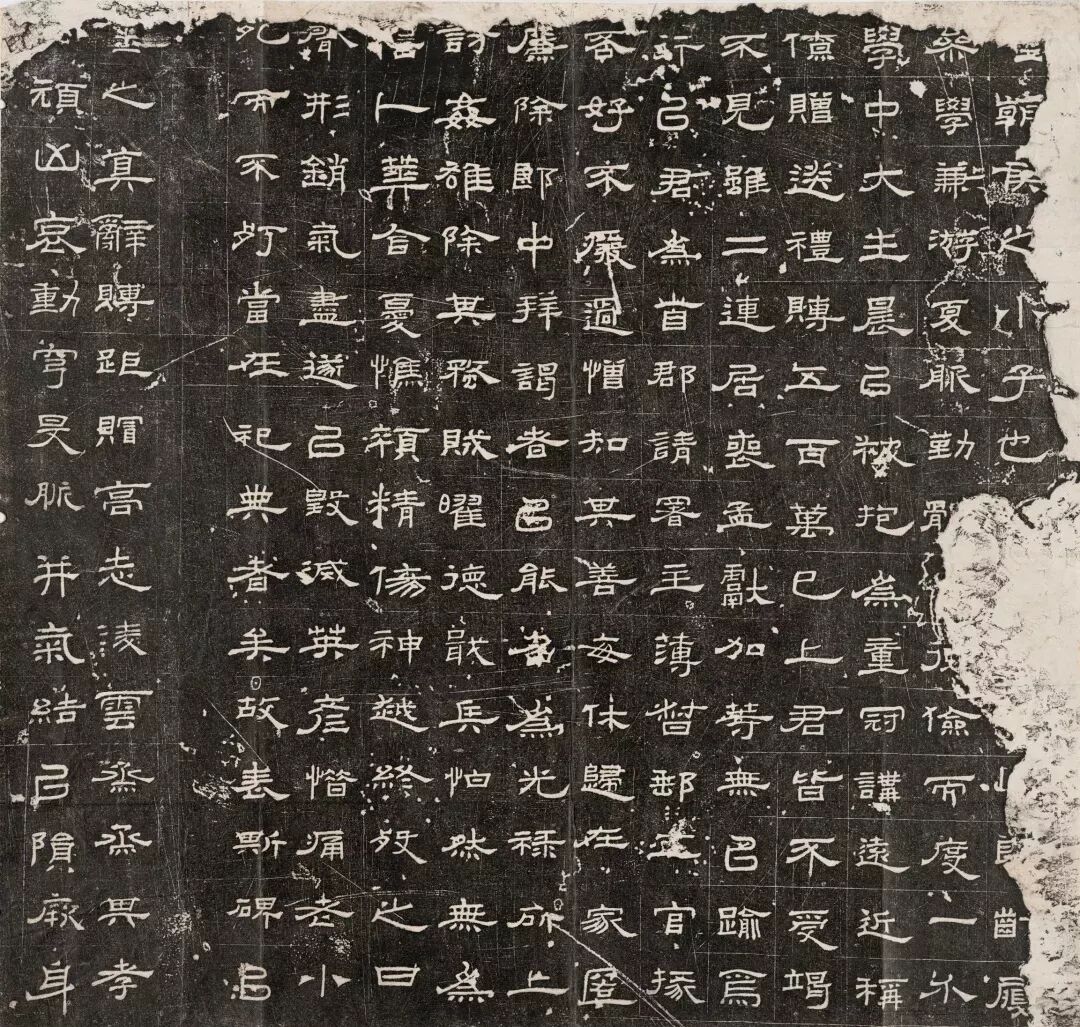 朝侯之小子也 齒履
學兼游夏服勤 儉而度一介
學中大主晨以被抱為童冠講遠近稱
僚贈送禮賻五百萬已上君皆不受竭
不見雖二連居喪孟獻加等無以踰焉
行己君為首郡請署主薄督郵五官掾
否好不廢過憎知其善每休歸在家匿
廉除郎中拜謁者以能名為光祿所上
訪姦雄除其蟊賊曜德戢兵怕然無為
人 合憂憔顇精傷神越終歿之日
形銷氣盡遂以毀滅英彥惜痛老小
死而不朽當在祀典者矣故表斯碑以
之真辭賻距賵高志淩雲烝烝其孝
凶哀動穹旻脈并氣結以隕厥身